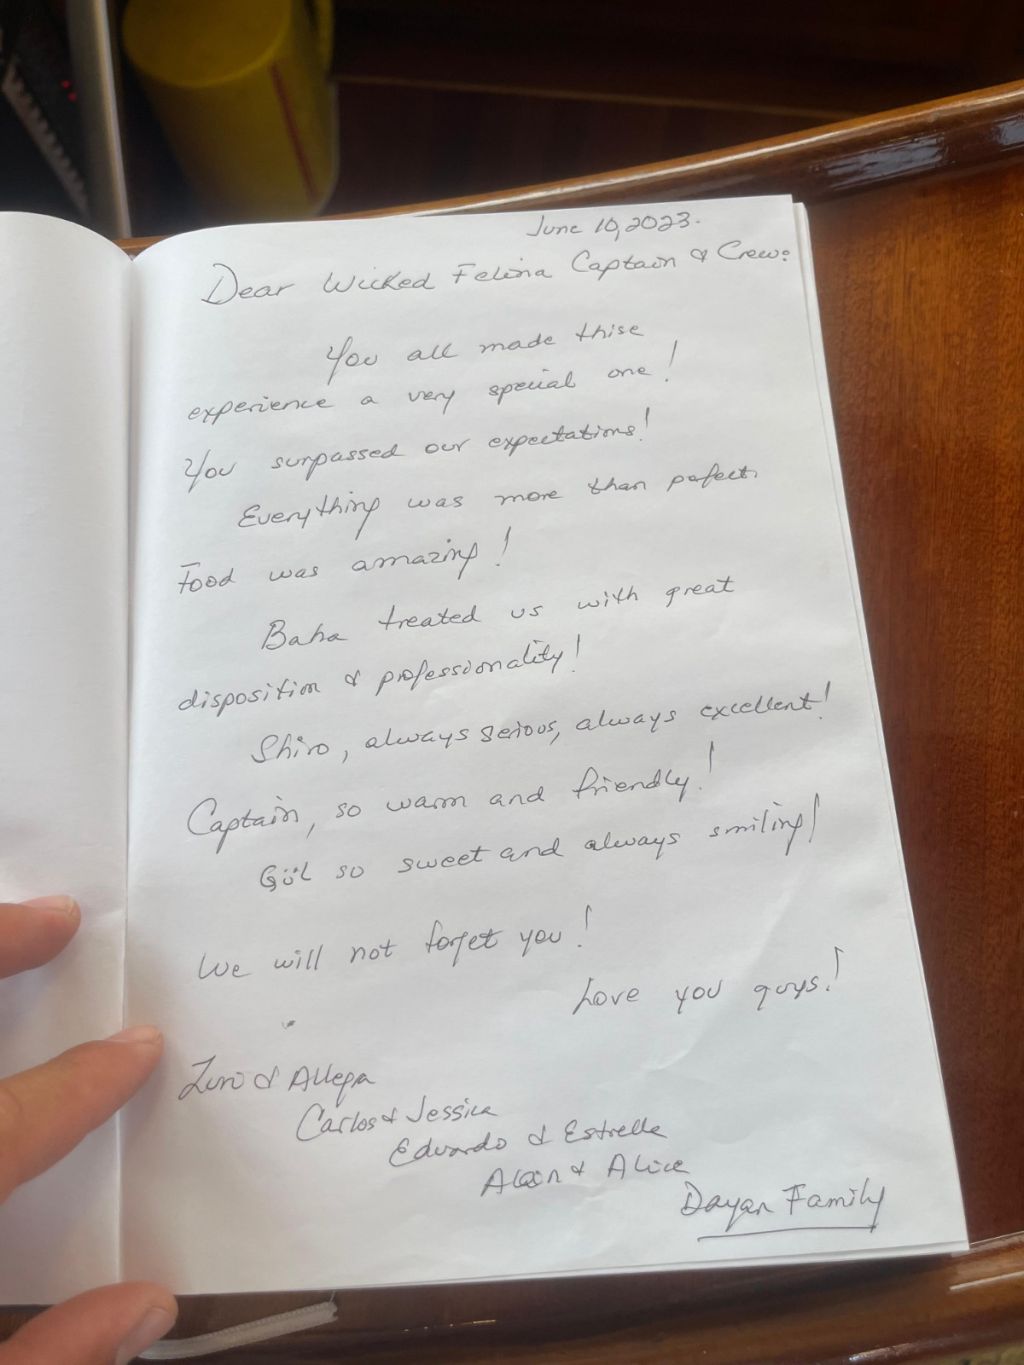 June 10, 2023.
Dear Wicked Felina Captain & Crew:
You all made thise
experience a very special one!
You surpassed our expectations!
Everything was more than pefect.
Food was amazing!
Baha treated us with great
disposition & professionality!
Shiro, always serious, always excellent!
Captain, so warm and friendly!
Gül so sweet and always smiling!
We will not forget you!
Love you guys!
& Allegra
Carlos & Jessica
Eduardo & Estrelle
Alain & Alice
Dayan Family